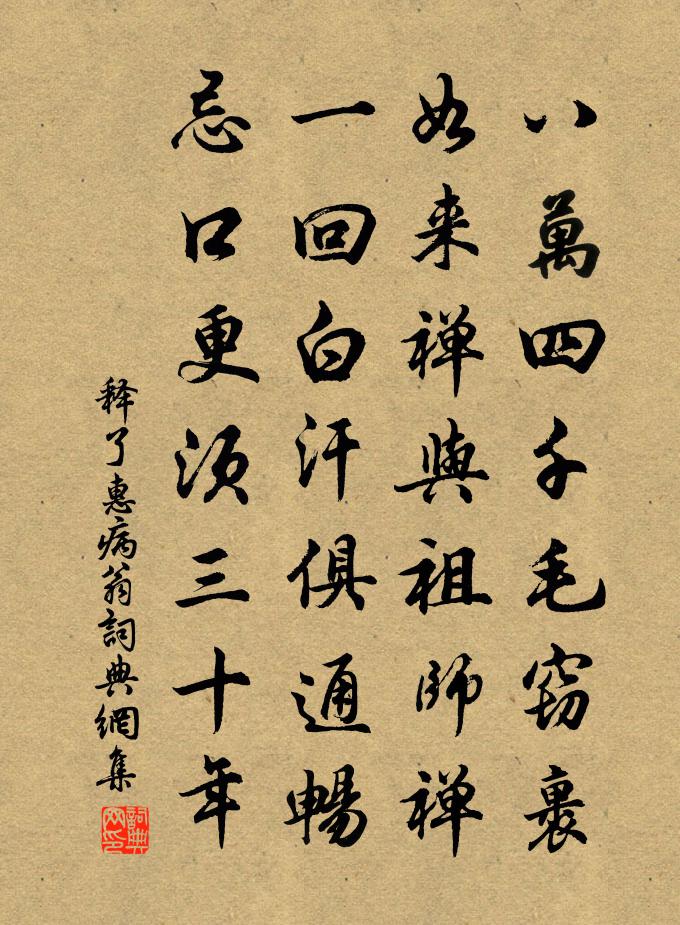 八萬四千毛竅裹
如来禅與祖師禅
一回白汗俱通暢
忌口更須三十年
释了惠病翁詞典網集
詞典網印